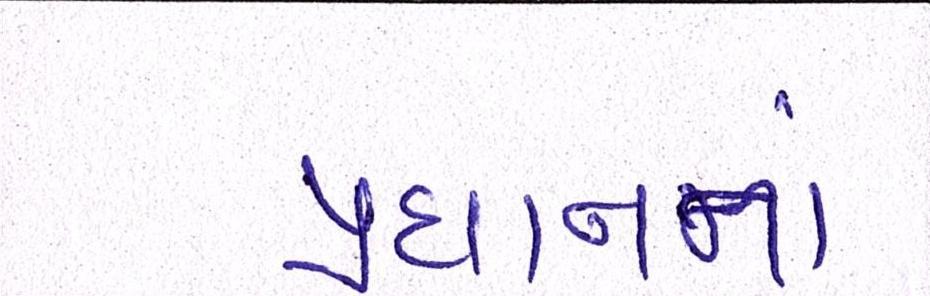 પ્રધાનનાં